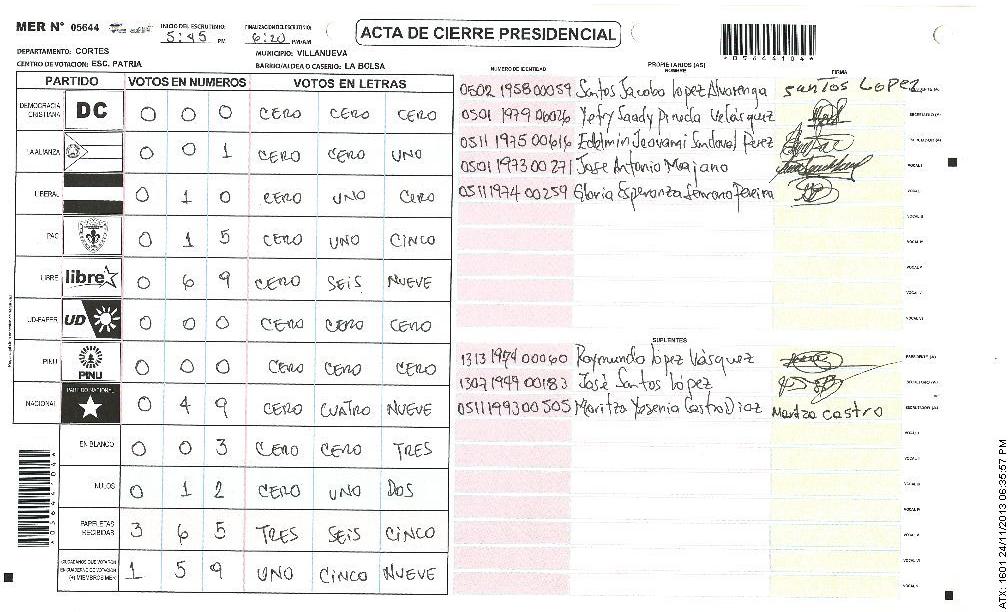 MER N° 05644
INICIO DEL ESCRUTINIO: 5:45 PM
FINALIZACION DEL ESCRUTINIO: 6:20 PM/AM
ACTA DE CIERRE PRESIDENCIAL
*05644104*
DEPARTAMENTO: CORTES
MUNICIPIO: VILLANUEVA
CENTRO DE VOTACION: ESC. PATRIA
BARRIO/ALDEA O CASERIO: LA BOLSA
PARTIDO VOTOS EN NUMEROS VOTOS EN LETRAS
DEMOCRACIA CRISTIANA DC 0 0 0 CERO CERO CERO
LA ALIANZA 0 0 1 CERO CERO UNO
LIBERAL 0 1 0 CERO UNO CERO
PAC 0 1 5 CERO UNO CINCO
LIBRE libre 0 6 9 CERO SEIS NUEVE
UD-FAPER UD 0 0 0 CERO CERO CERO
PINU PINU 0 0 0 CERO CERO CERO
NACIONAL PARTIDO NACIONAL 0 4 9 CERO CUATRO NUEVE
EN BLANCO 0 0 3 CERO CERO TRES
NULOS 0 1 2 CERO UNO DOS
PAPELETAS RECIBIDAS 3 6 5 TRES SEIS CINCO
CIUDADANOS QUE VOTARON EN CUADERNO DE VOTACION (+) MIEMBROS MER 1 5 9 UNO CINCO NUEVE
*05644104*
PROPIETARIOS (AS)
NUMERO DE IDENTIDAD NOMBRE FIRMA
0502 1958 00059 Santos Jacobo Lopez Alvorenga santos Lopez
0501 1979 00026 Yefry Saady Pineda Velásquez SECRETARIO (A)
0511 1975 00616 Edelmin Jeovami Sandoval Perez
0501 1973 00271 Jose Antonio Majano VOCAL I
0511 1974 00259 Gloria Esperanza Serrano Pereira VOCAL II
VOCAL III
VOCAL IV
VOCAL V
VOCAL VI
SUPLENTES
1313 1974 00060 Raymundo López Vásquez PRESIDENTE (A)
1307 1949 00183 José Santos López SECRETARIO (A)
0511 1993 00505 Maritza Yesenia Castro Diaz Maritza castro ESCRUTADOR (A)
VOCAL I
VOCAL II
VOCAL III
VOCAL IV
VOCAL V
ATX: 1601 24/11/2013 06:35:57 PM